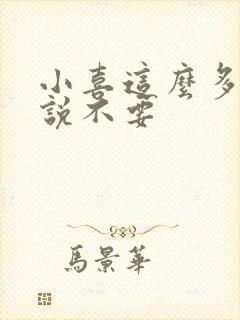 小喜這麼多
說不要
馬景華